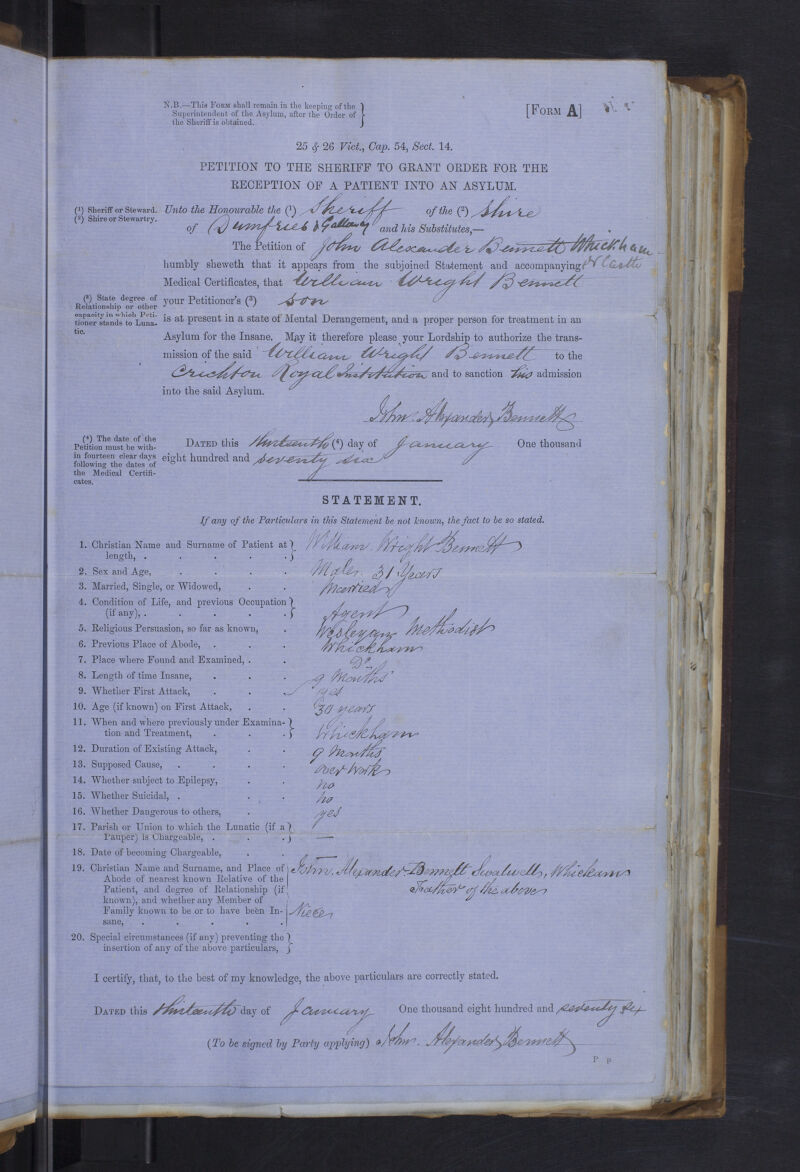 N.B.—This Form shall remain in the keeping of the
Superintendent of the Asylum, after the Order of
the Sheriff is obtained.
[Form A]
25 & 26 Vict., Cap. 54, Sect. 14.
PETITION TO THE SHERIFF TO GRANT ORDER FOR THE
RECEPTION OF A PATIENT INTO AN ASYLUM.
(¹) Sheriff or Steward.
(²) Shire or Stewartry.
Unto the Honourable the (¹) Sheriff of the (²) Shire
of Dumfries & Galloway and his Substitutes,—
The Petition of John Alexander Bennett Whickham
humbly sheweth that it appears from the subjoined Statement and accompanying N Castle
Medical Certificates, that William Wright Bennett
(³) State degree of
Relationship or other
capacity in which Peti-
tioner stands to Luna-
tic.
your Petitioner's (³) son
is at present in a state of Mental Derangement, and a proper person for treatment in an
Asylum for the Insane. May it therefore please your Lordship to authorize the trans-
mission of the said William Wright Bennett to the
Crichton Royal Institution and to sanction his admission
into the said Asylum.
John Alexander Bennett
(⁴) The date of the
Petition must be with-
in fourteen clear days
following the dates of
the Medical Certifi-
cates.
Dated this thirteenth (⁴) day of January One thousand
eight hundred and seventy six
STATEMENT.
If any of the Particulars in this Statement be not known, the fact to be so stated.
1. Christian Name and Surname of Patient at
length, . William Wright Bennett
2. Sex and Age, Male 31 Years
3. Married, Single, or Widowed, Married
4. Condition of Life, and previous Occupation
(if any), . Agent
5. Religious Persuasion, so far as known, Wesleyan Methodist
6. Previous Place of Abode, . Whickham
7. Place where Found and Examined, . Do
8. Length of time Insane, 9 Months
9. Whether First Attack, yes
10. Age (if known) on First Attack, 30 years
11. When and where previously under Examina-
tion and Treatment, Whickham
12. Duration of Existing Attack, 9 Months
13. Supposed Cause, over work
14. Whether subject to Epilepsy, no
15. Whether Suicidal, . no
16. Whether Dangerous to others, yes
17. Parish or Union to which the Lunatic (if a
Pauper) is Chargeable, . —
18. Date of becoming Chargeable, —
19. Christian Name and Surname, and Place of
Abode of nearest known Relative of the
Patient, and degree of Relationship (if
known), and whether any Member of
Family known to be or to have been In-
sane,
John Alexander Bennett Swalwell, Whickham
Father of the above
Niece
20. Special circumstances (if any) preventing the
insertion of any of the above particulars,
I certify, that, to the best of my knowledge, the above particulars are correctly stated.
Dated this thirteenth day of January One thousand eight hundred and seventy six
(To be signed by Party applying) John Alexander Bennett
P p